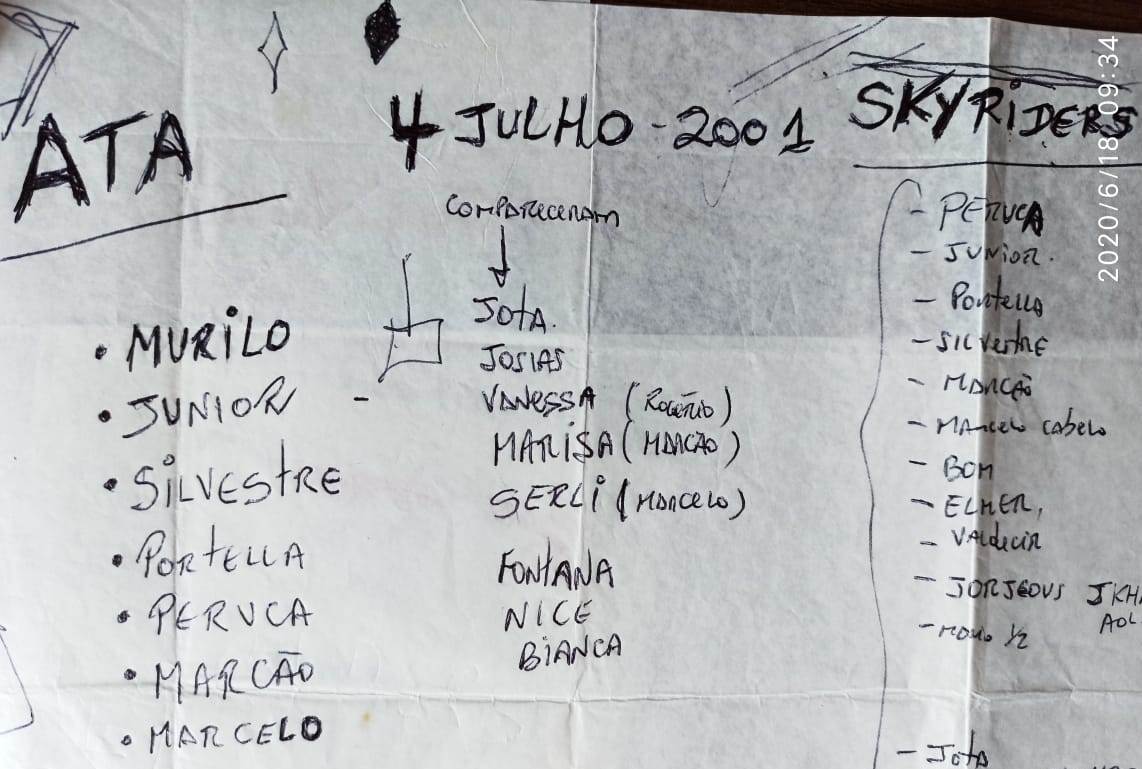 ATA
4 JULHO - 2001
SKYRIDERS
COMPARECERAM
• MURILO
• JUNIOR -
• SILVESTRE
• PORTELLA
• PERUCA
• MARCÃO
• MARCELO
JOTA.
JOSIAS
VANESSA (ROGÉRIO)
MARISA (MARCÃO)
SERLI (MARCELO)
FONTANA
NICE
BIANCA
- PERUCA
- JUNIOR.
- Portella
- SILvestRE
- MARCÃO
- MArcelo cabelo
- BOM
- ELMER,
- VALdecir
- JORJEOUS JKH
AOL
- 1/2
- Jota
2020/6/18 09:34